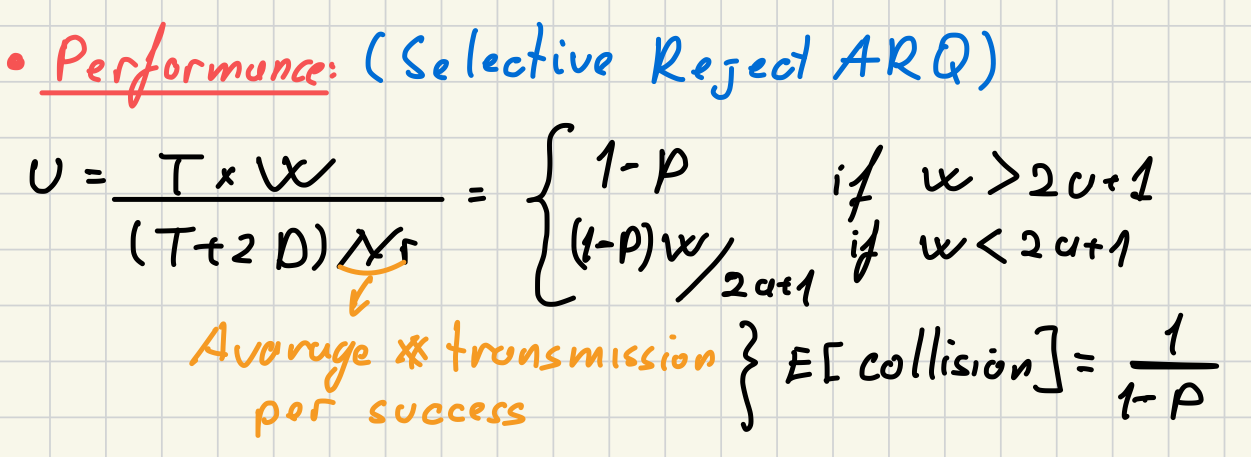 • Performance: (Selective Reject ARQ)
U = T × W / (T+2D) Nr = { 1-P if w > 2a+1
(1-P)W/2a+1 if w < 2a+1
Avarage # transmission
per success } E[collision] = 1/1-P